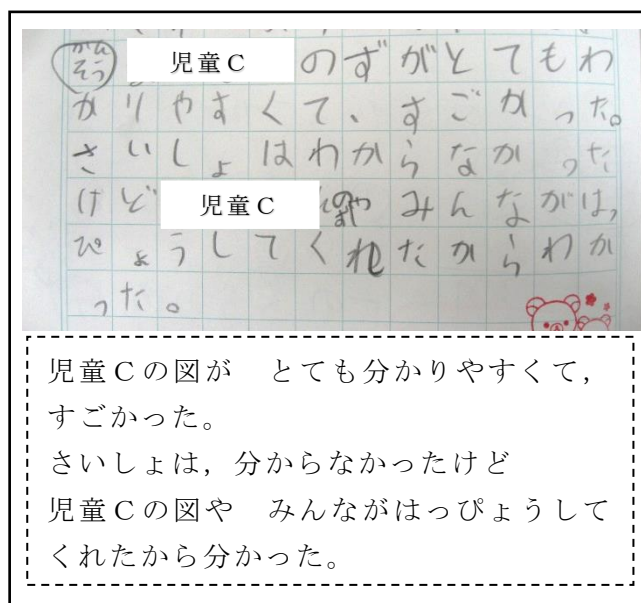 かんそう
児童C のずがとてもわ
かりやすくて、すごかった。
さいしょはわからなかった
けど 児童C のずや みんながはっ
ぴょうしてくれたからわか
った。
児童Cの図が とても分かりやすくて，
すごかった。
さいしょは，分からなかったけど
児童Cの図や みんながはっぴょうして
くれたから分かった。